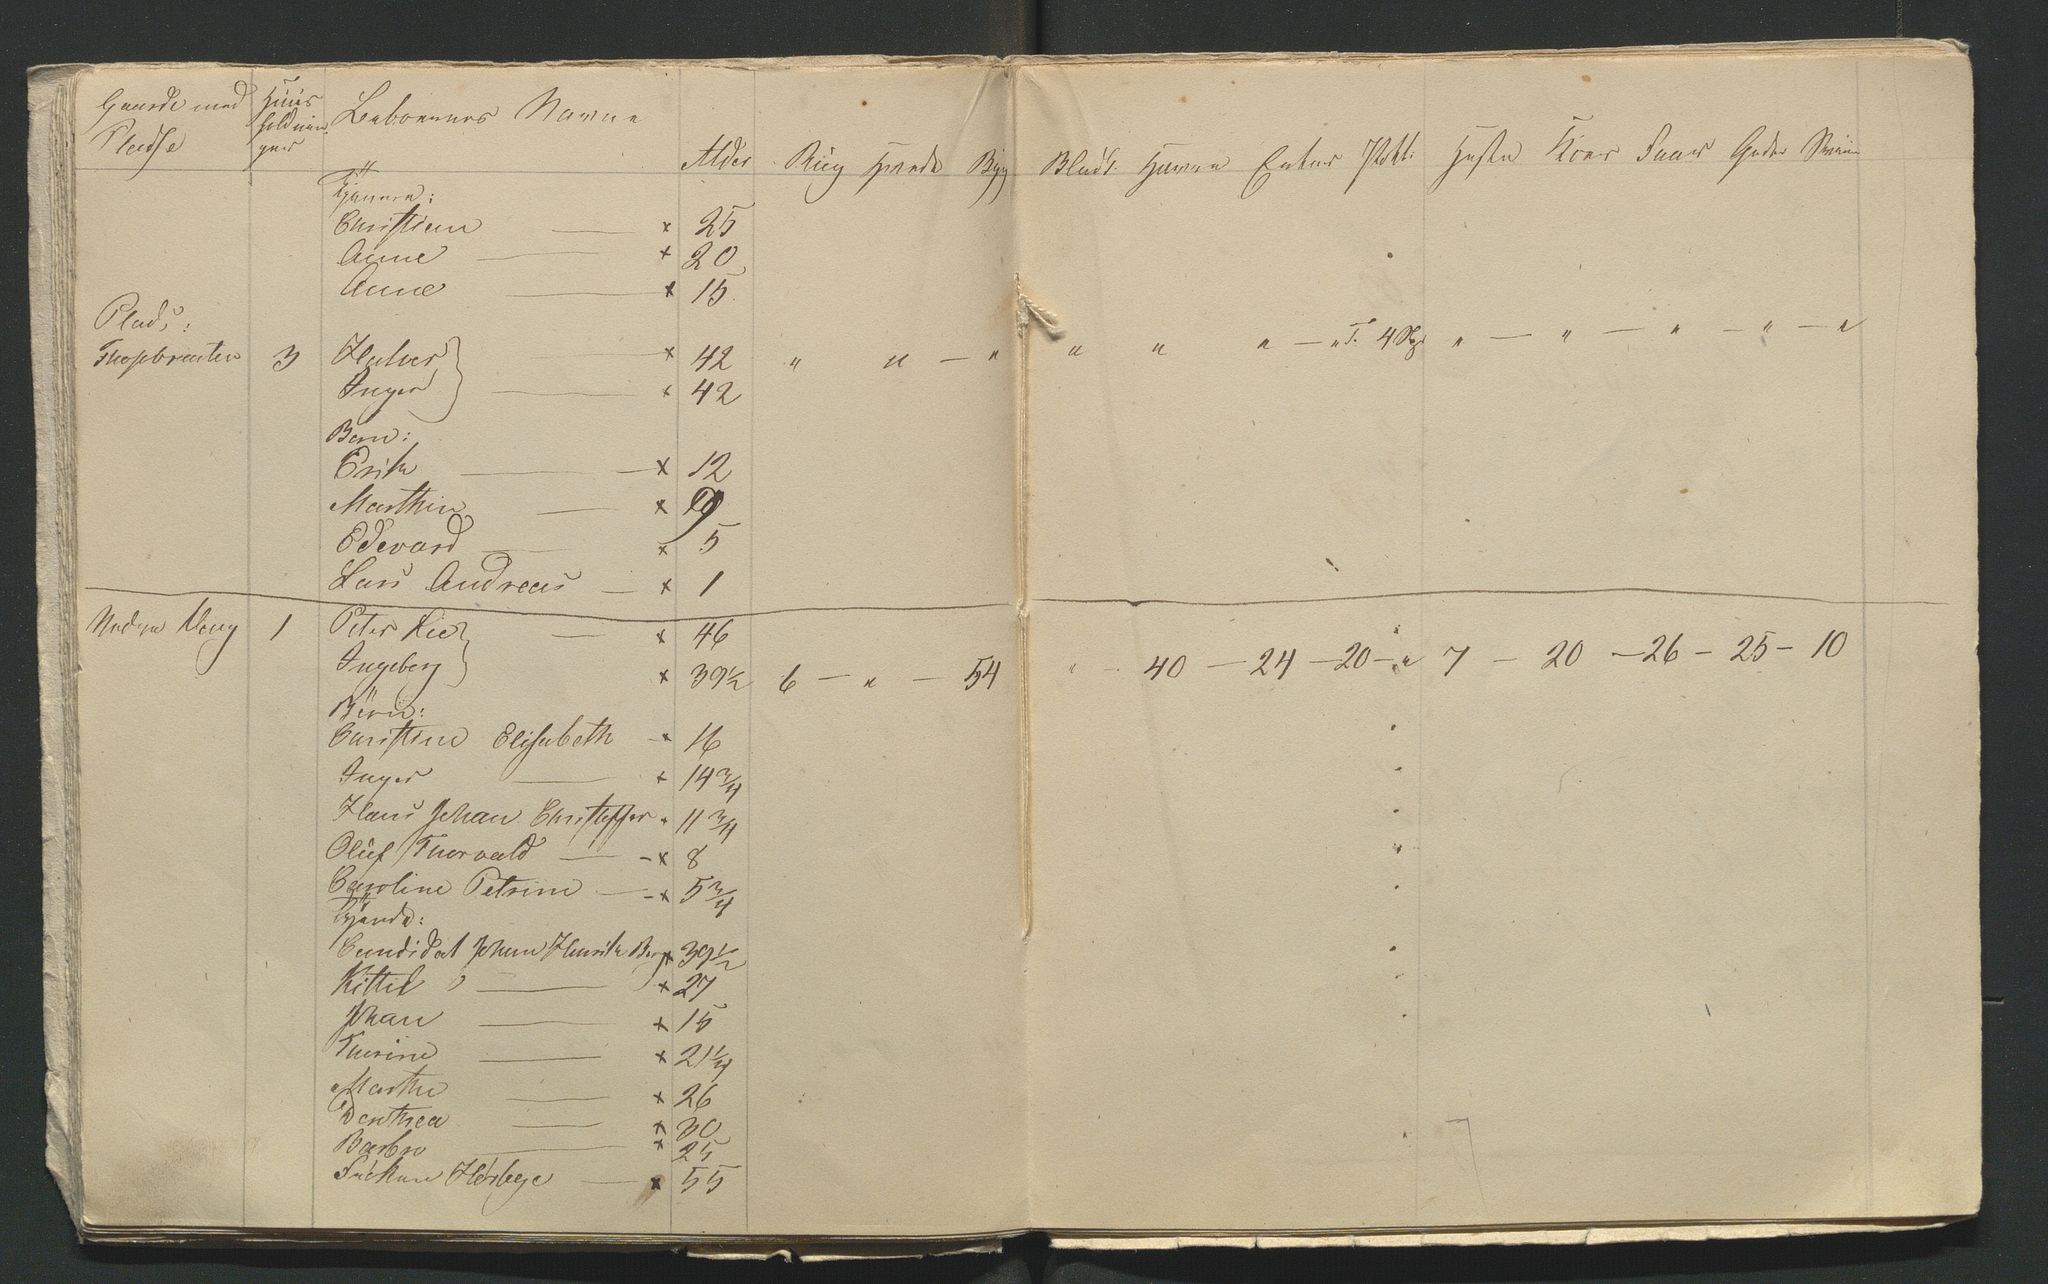 Gaarde med Pladse Huus holdnin ger Beboernes Navne Alder Rug Hvede Byg Bladk. Havre Erter Pott: Heste Köer Faar Geder Sviin
Tjenere:
Christian — × 25
Anne — × 20
Anne — × 15
Plads:
3 Halvor — × 42 " " — " " " " — " T. 4 " — " — " — " — "
Inger — × 42
Børn:
Erik — × 12
Marthin — × 9
Edevard — × 5
Lars Andreas — × 1
Nedre 1 Peter Lie — × 46
Ingeborg × 39½ 6 — " — 54 " — 40 — 24 — 20 — " 7 — 20 — 26 — 25 — 10
Børn:
Christine Elisabeth — × 16
Inger — × 14 3/4
Hans Johan Christopher × 11 3/4
Oluf Thorvald — × 8
Caroline Petrine — × 5 3/4
Tjende:
Candidat Johan Henrik Berg × 39½
Kittil — × 27
Johan — × 15
Thorine — × 21¼
Marthe — × 26
Dorthea — × 30
Barbro — × 25
Frøken — × 55